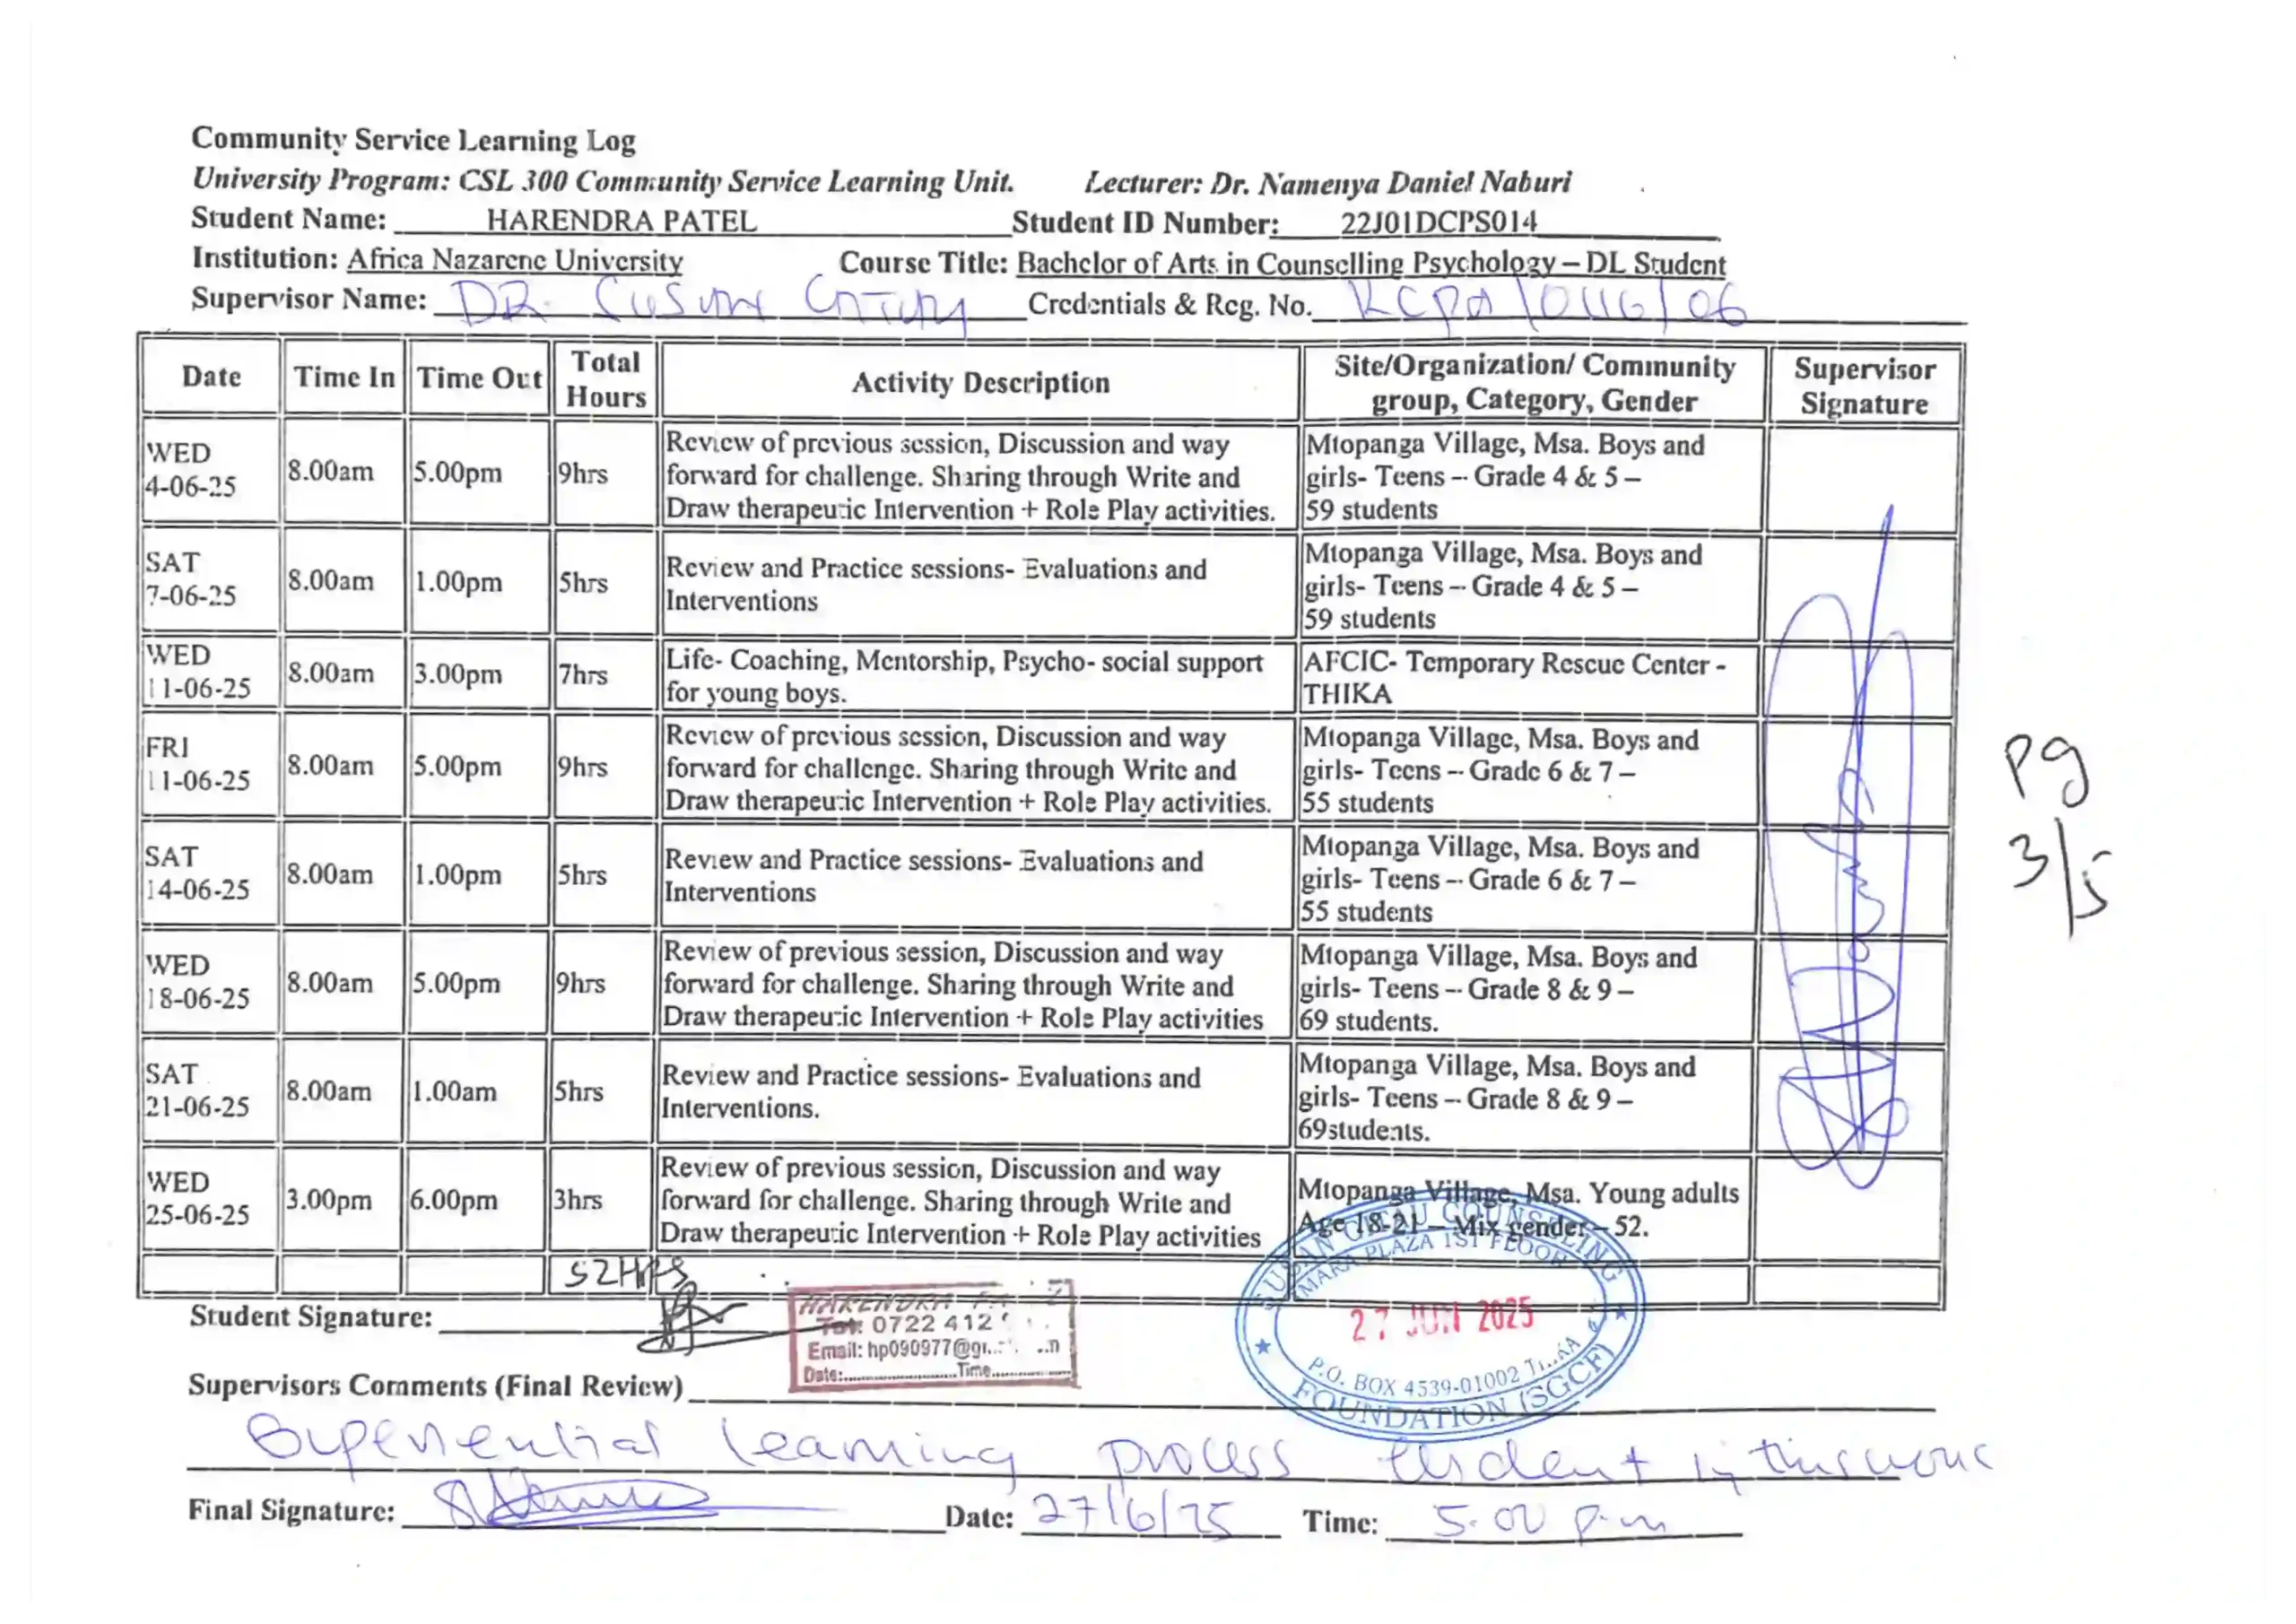 Community Service Learning Log
University Program: CSL 300 Community Service Learning Unit. Lecturer: Dr. Namenya Daniel Naburi
Student Name: HARENDRA PATEL Student ID Number: 22J01DCPS014
Institution: Africa Nazarene University Course Title: Bachelor of Arts in Counselling Psychology – DL Student
Supervisor Name: DR. Credentials & Reg. No. KCPA/0116/06
Date Time In Time Out Total Hours Activity Description Site/Organization/ Community group, Category, Gender Supervisor Signature
WED
4-06-25
8.00am
5.00pm
9hrs
Review of previous session, Discussion and way
forward for challenge. Sharing through Write and
Draw therapeutic Intervention + Role Play activities.
Mtopanga Village, Msa. Boys and
girls- Teens – Grade 4 & 5 –
59 students
SAT
7-06-25
8.00am
1.00pm
5hrs
Review and Practice sessions- Evaluations and
Interventions
Mtopanga Village, Msa. Boys and
girls- Teens – Grade 4 & 5 –
59 students
WED
11-06-25
8.00am
3.00pm
7hrs
Life- Coaching, Mentorship, Psycho- social support
for young boys.
AFCIC- Temporary Rescue Center -
THIKA
FRI
11-06-25
8.00am
5.00pm
9hrs
Review of previous session, Discussion and way
forward for challenge. Sharing through Write and
Draw therapeutic Intervention + Role Play activities.
Mtopanga Village, Msa. Boys and
girls- Teens – Grade 6 & 7 –
55 students
SAT
14-06-25
8.00am
1.00pm
5hrs
Review and Practice sessions- Evaluations and
Interventions
Mtopanga Village, Msa. Boys and
girls- Teens – Grade 6 & 7 –
55 students
WED
18-06-25
8.00am
5.00pm
9hrs
Review of previous session, Discussion and way
forward for challenge. Sharing through Write and
Draw therapeutic Intervention + Role Play activities
Mtopanga Village, Msa. Boys and
girls- Teens – Grade 8 & 9 –
69 students.
SAT
21-06-25
8.00am
1.00am
5hrs
Review and Practice sessions- Evaluations and
Interventions.
Mtopanga Village, Msa. Boys and
girls- Teens – Grade 8 & 9 –
69students.
WED
25-06-25
3.00pm
6.00pm
3hrs
Review of previous session, Discussion and way
forward for challenge. Sharing through Write and
Draw therapeutic Intervention + Role Play activities
Mtopanga Village, Msa. Young adults
Age 18-21 – Mix gender – 52.
52HRS
Pg
3/5
Student Signature:
HARENDRA
Tel: 0722 412
Email: hp090977@
Date: Time
COUNSELING
PLAZA 1ST FLOOR
27 JUN 2025
P.O. BOX 4539-01002
FOUNDATION (SGCF)
Supervisors Comments (Final Review)
Experiential learning process evident in this work
Final Signature: Date: 27/6/25 Time: 5.00 p.m